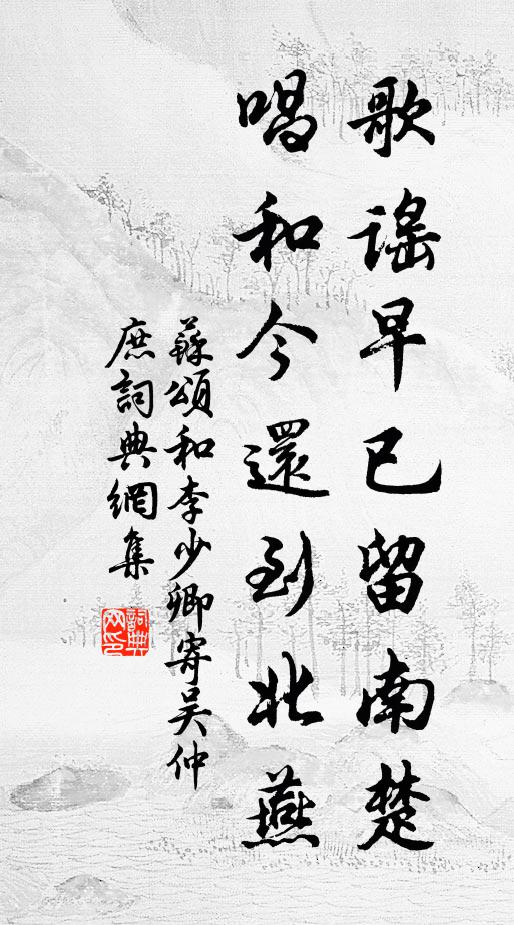 歌謠早已留南楚
唱和今還到北燕
蘇頌和李少卿寄吳仲
庶詞典網集
詞典
网印